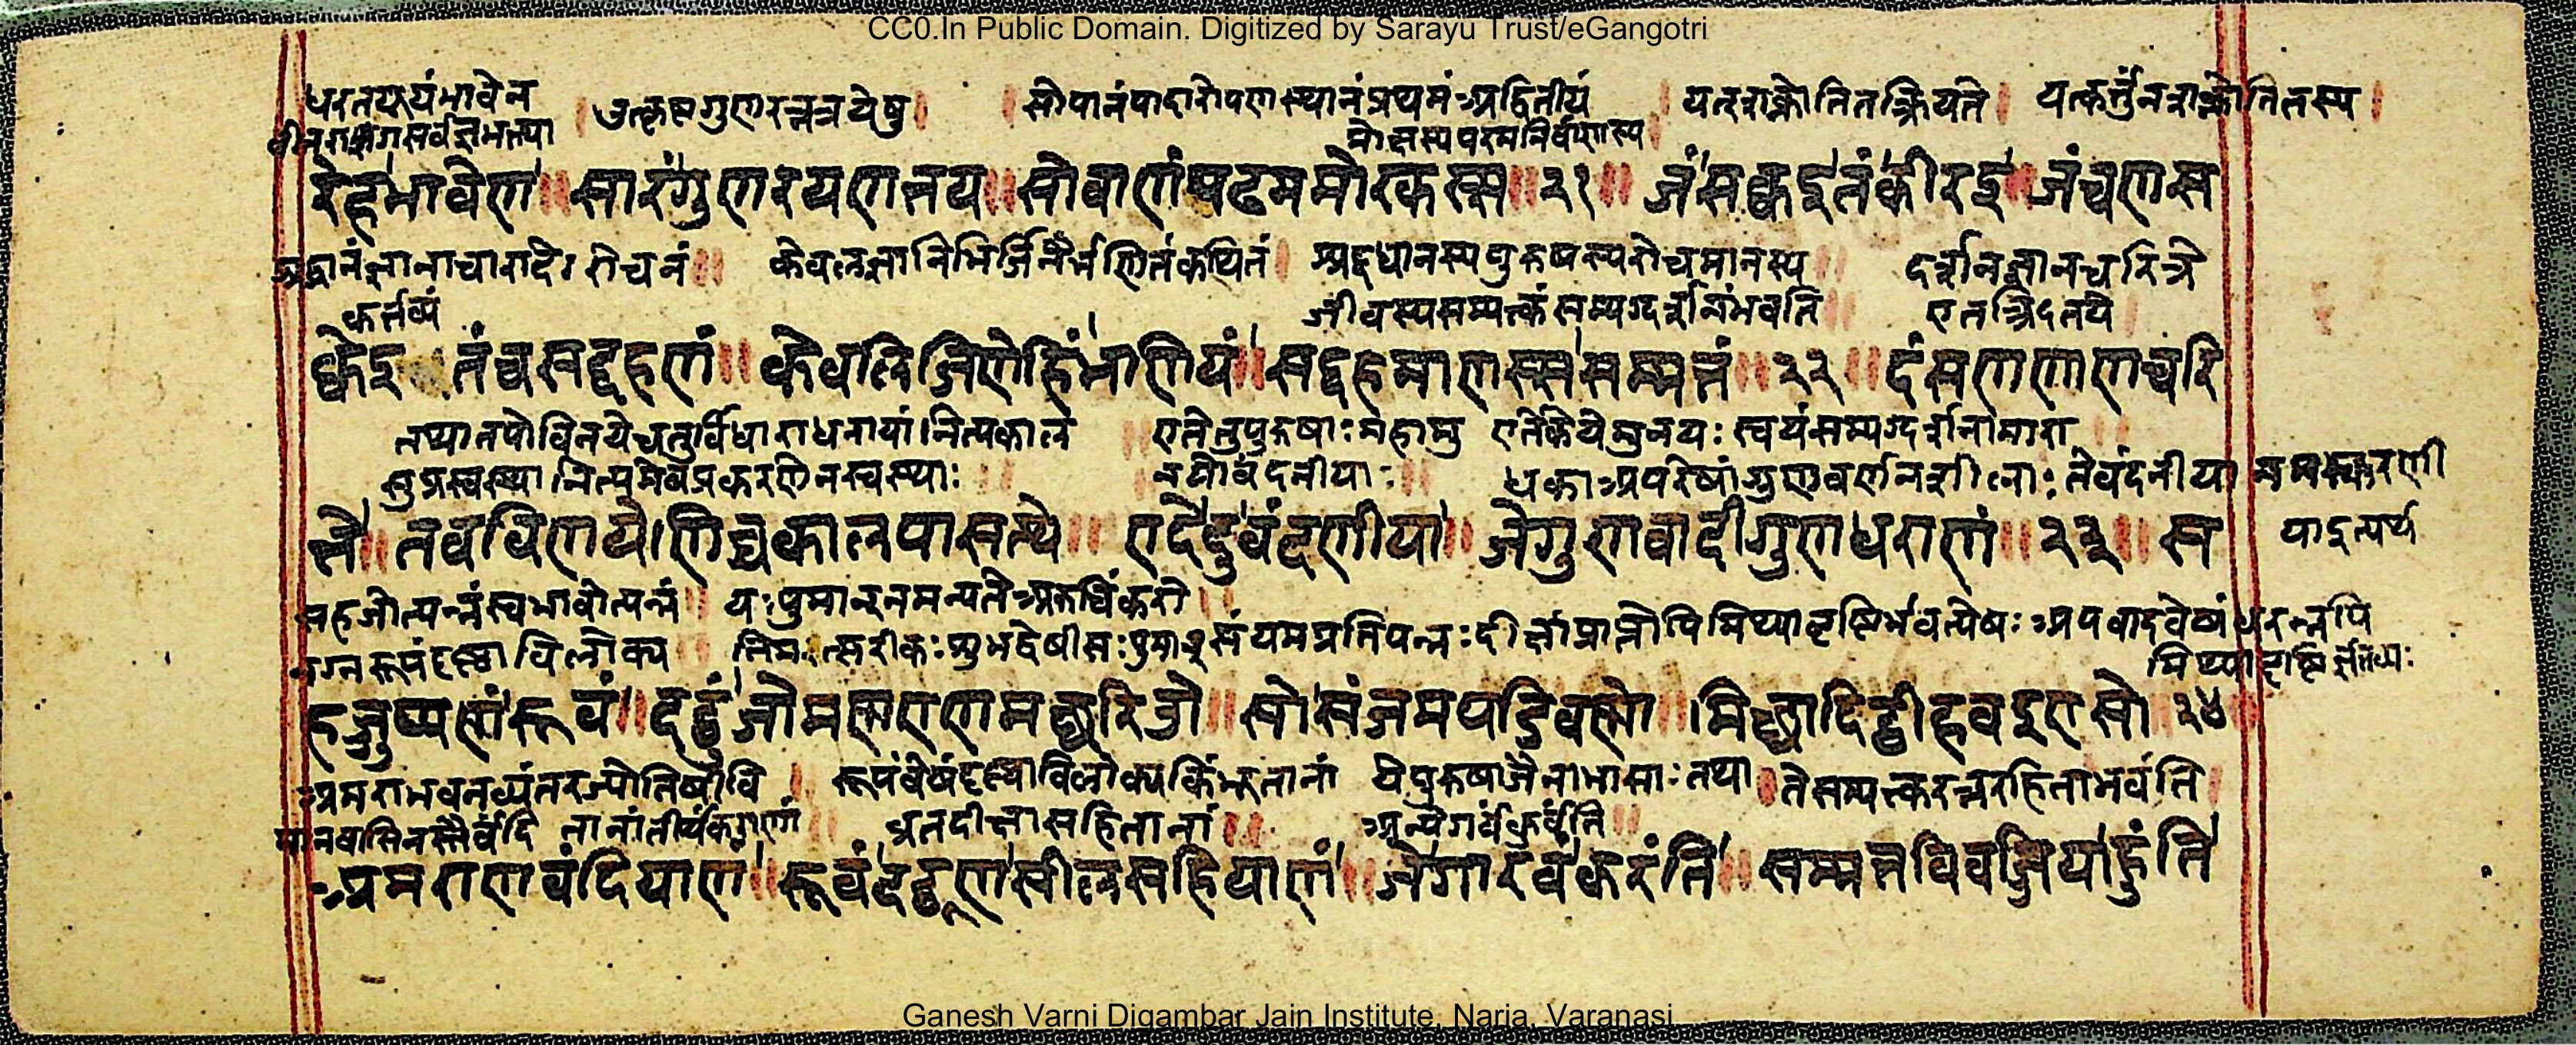 CC0.In Public Domain. Digitized by Sarayu Trust/eGangotri
धरतयूयंभावेन । उत्कृष्टगुणरत्नत्रयेषु । सोपानंपादारोपणस्थानंप्रथमंअद्वितीयं । यत्शक्नोतितत्क्रियते । यत्कर्तुंनशक्नोतितस्य ।
वीतरागसर्वज्ञभक्त्या मोक्षस्यपरमनिर्वाणस्य ।
रेहभावेण ॥ सारंगुणरयणत्तय ॥ सोवाणंपढममोरकस्स ॥ २१ ॥ जंसक्कइतंकीरइ ॥ जंचणस
श्रद्धानंज्ञानाचारादेः रोचनं ॥ केवलज्ञानिभिर्जिनैर्भणितंकथितं । श्रद्दधानस्यपुरुषस्यरोचमानस्य ॥ दर्शनज्ञानचरित्रे
कर्तव्यं जीवस्यसम्यक्त्वंसम्यग्दर्शनंभवति ॥ एतत्रितये
क्केइ तंचसद्दहणं ॥ केवलिजिणेहिंभणियं ॥ सद्दहमाणस्ससम्मत्तं ॥ २२ ॥ दंसणणाणचरि
तथातपोविनयेचतुर्विधाराधनायां।नित्यकालं ॥ एतेतुपुरुषाःमहामु एतेकेयेमुनयः स्वयंसम्यग्दर्शनानामारा
सुप्रस्वस्था।नित्यमेवप्रकरणेनस्वस्थाः नयोवंदनीयाः ॥ धकाःअपरेषांगुणवर्णनशीलाः तेवंदनीया नमस्करणी
त्ते ॥ तवविणये।णिच्चकालपासत्थे ॥ एदेदुवंदणीया ॥ जेगुणवादीगुणधराणं ॥ २३ ॥ स यादृत्यर्थ
सहजोत्पन्नंस्वभावोत्पन्नं ॥ यःपुमान्नमन्यतेअरुचिंकरो
नग्नरूपंदृष्ट्वाविलोक्य तिमत्सरीकःशुभद्वेषीसःपुमान्संयमप्रतिपन्नःदीक्षांप्राप्तोपिमिथ्यादृष्टिर्भवत्येषःअपवादवेषंधरन्नपि
मिथ्यादृष्टि
हजुप्पण्णंरूवं ॥ दट्ठुंजोमण्णएणमच्छरिओ ॥ सोसंजमपडिवण्णो ॥ मिच्छादिट्ठीहवइएसो २४
अमराभवनव्यंतरज्योतिषीवि । रूपंवेषंदृष्ट्वाविलोक्यकिंभूतानां येपुरुषाजैनाभासाःतथा तेसम्यक्त्वरत्नरहिताभवंति ।
मानवासिनस्तैर्वंदि तानांतीर्थंकराणां ॥ व्रतदीक्षासहितानां ॥ अन्येगर्वंकुर्वंति ॥
अमराणवंदियाणं ॥ रूवंदट्ठूणसीलसहियाणं ॥ जेगारवंकरंति ॥ सम्मत्तविवज्जियाहुंति
Ganesh Varni Digambar Jain Institute, Naria, Varanasi